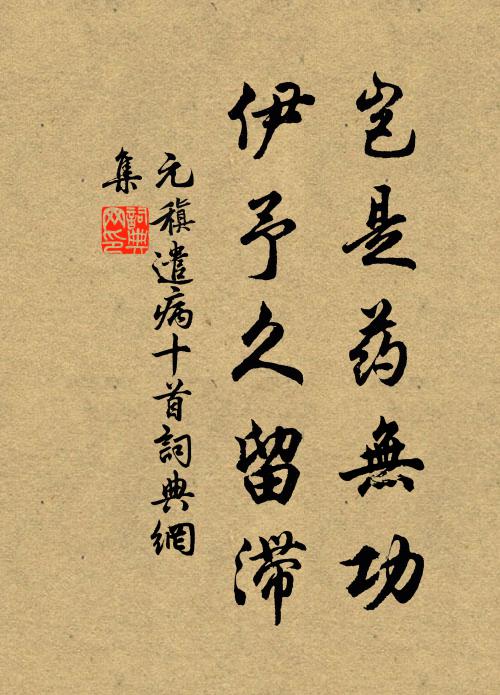 豈是药無功
伊予久留滞
元稹遣病十首詞典網
集
詞典
网印